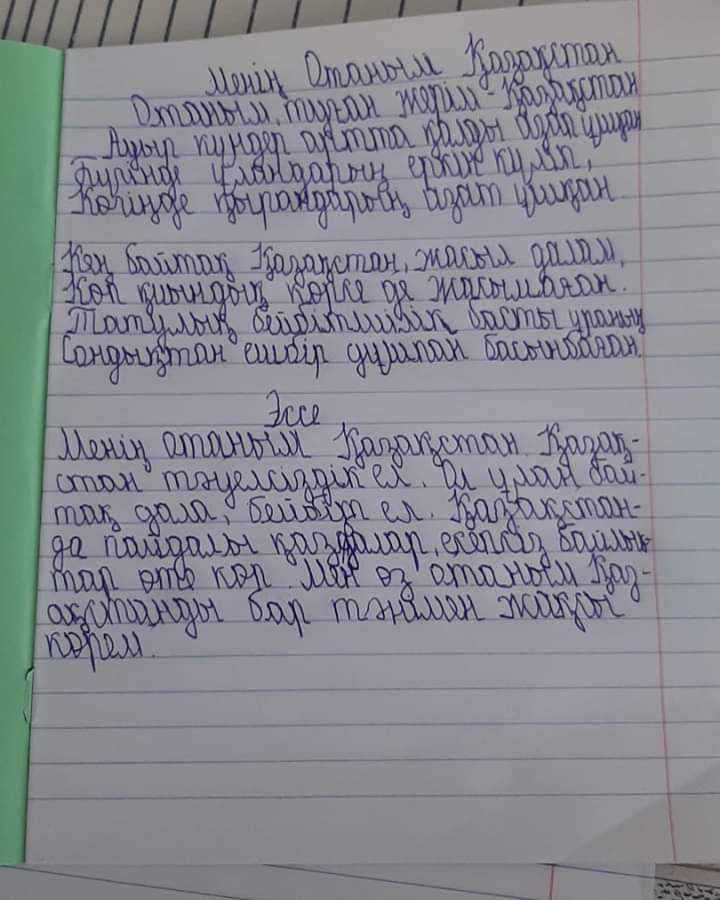 Менің Отаным Қазақстан
Отаным, туған жерім - Қазақстан
Ауыр күндер артта қалды азап ұшқан
Бүгінде ұландарың еркін күліп,
Көгіңде қырандарың азат ұшқан
Кең байтақ Қазақстан, жасыл далам,
Көп қиындық көрсе де жасымаған.
Татулық бейбітшілік басты ұраның
Сондықтан ешбір дұшпан басынбаған.
Эссе
Менің отаным Қазақстан. Қазақ-
стан тәуелсіздік ел. Ол ұлан бай-
тақ дала, бейбіт ел. Қазақстан-
да пайдалы қаздалар, есепсіз байлық-
тар өте көп. Мен өз отаным Қаз-
ақстанды бар тәнімен жақсы
көрем.